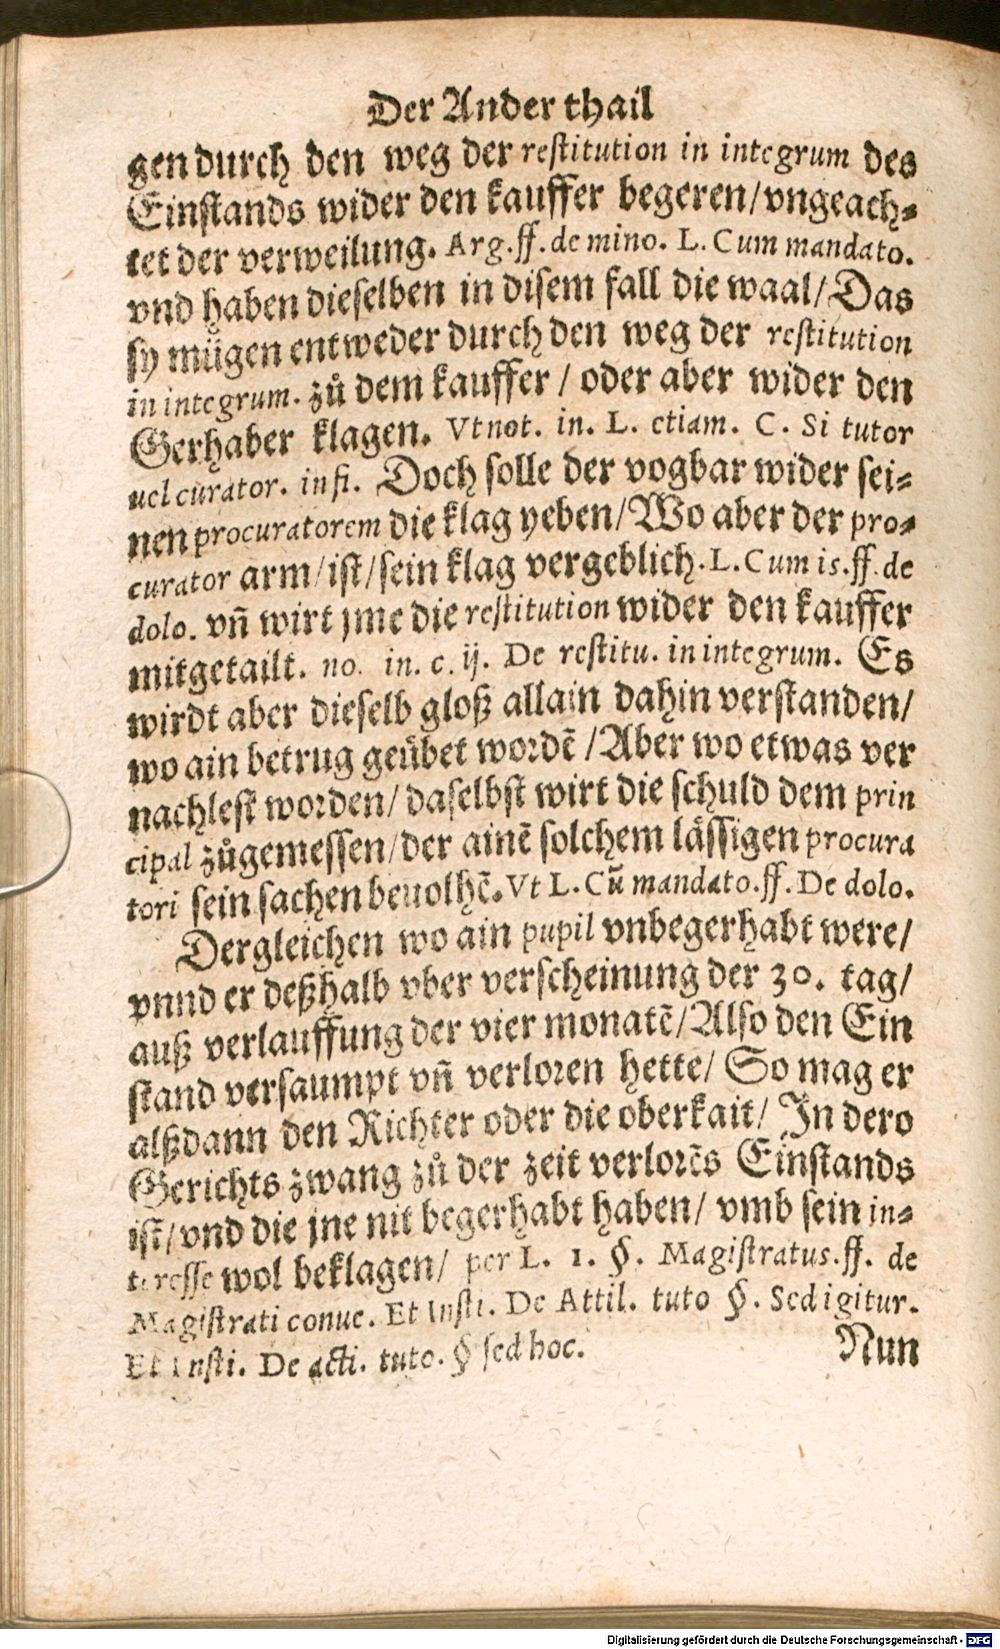 Der Ander thail
gen durch den weg der restitution in integrum des
Einstands wider den kauffer begeren/vngeach⸗
tet der verweilung. Arg. ff. de mino. L. Cum mandato.
vnd haben dieselben in disem fall die waal/Das
sy mügen entweder durch den weg der restitution
in integrum. zů dem kauffer / oder aber wider den
Gerhaber klagen. Vt not. in. L. etiam. C. Si tutor
uel curator. in fi. Doch solle der vogbar wider sei⸗
nen procuratorem die klag yeben/Wo aber der pro⸗
curator arm/ist/sein klag vergeblich. L. Cum is. ff. de
dolo. vñ wirt jme die restitution wider den kauffer
mitgetailt. no. in. c. ij. De restitu. in integrum. Es
wirdt aber dieselb gloß allain dahin verstanden/
wo ain betrug geübet wordẽ /Aber wo etwas ver
nachlest worden/ daselbst wirt die schuld dem prin
cipal zůgemessen/der ainẽ solchem lässigen procura
tori sein sachen beuolhẽ. Vt L. Cũ mandato. ff. De dolo.
Dergleichen wo ain pupil vnbegerhabt were/
vnnd er deßhalb vber verscheinung der 30. tag/
auß verlauffung der vier monatẽ/Also den Ein
stand versaumpt vñ verloren hette/ So mag er
alßdann den Richter oder die oberkait/ In dero
Gerichts zwang zů der zeit verlorẽs Einstands
ist/vnd die jne nit begerhabt haben/ vmb sein in⸗
teresse wol beklagen/ per L. 1. §. Magistratus. ff. de
Magistrati conue. Et Insti. De Attil. tuto §. Sed igitur.
Et Insti. De acti. tuto. § sed hoc.
Nun
Digitalisierung gefördert durch die Deutsche Forschungsgemeinschaft - DFG